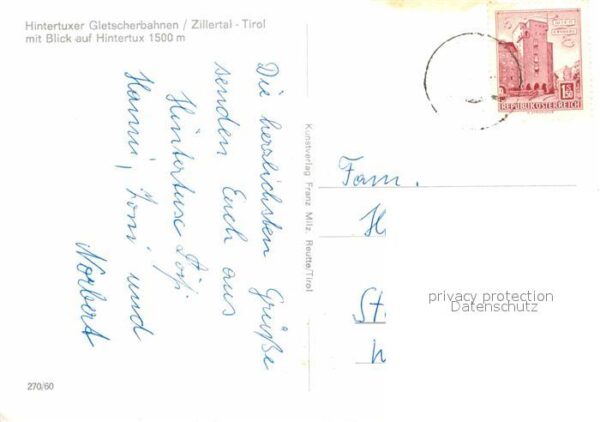 Hintertuxer Gletscherbahnen / Zillertal - Tirol
mit Blick auf Hintertux 1500 m
Die herzlichsten Grüße
senden Euch aus
Hintertux
Hanni, Toni und
Norbert
Kunstverlag Franz Milz, Reutte/Tirol
REPUBLIK ÖSTERREICH
Fam.
H
St
privacy protection
Datenschutz
270/60